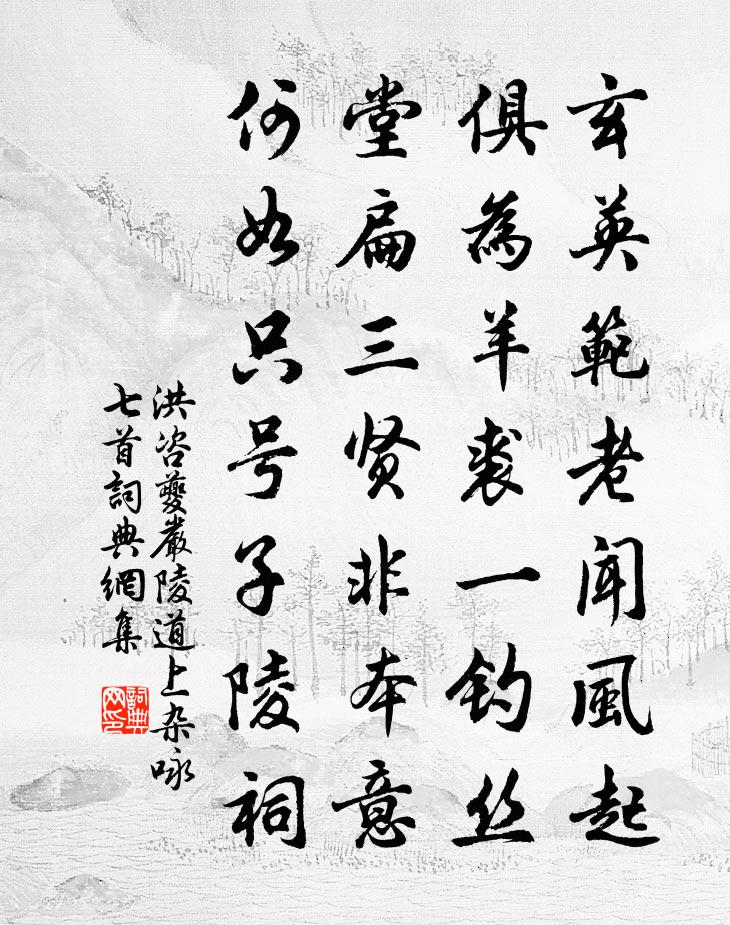 玄英範老闻風起
俱為羊裘一钓丝
堂扁三贤非本意
何如只号子陵祠
洪咨夔嚴陵道上杂咏
七首詞典網集
詞典网印